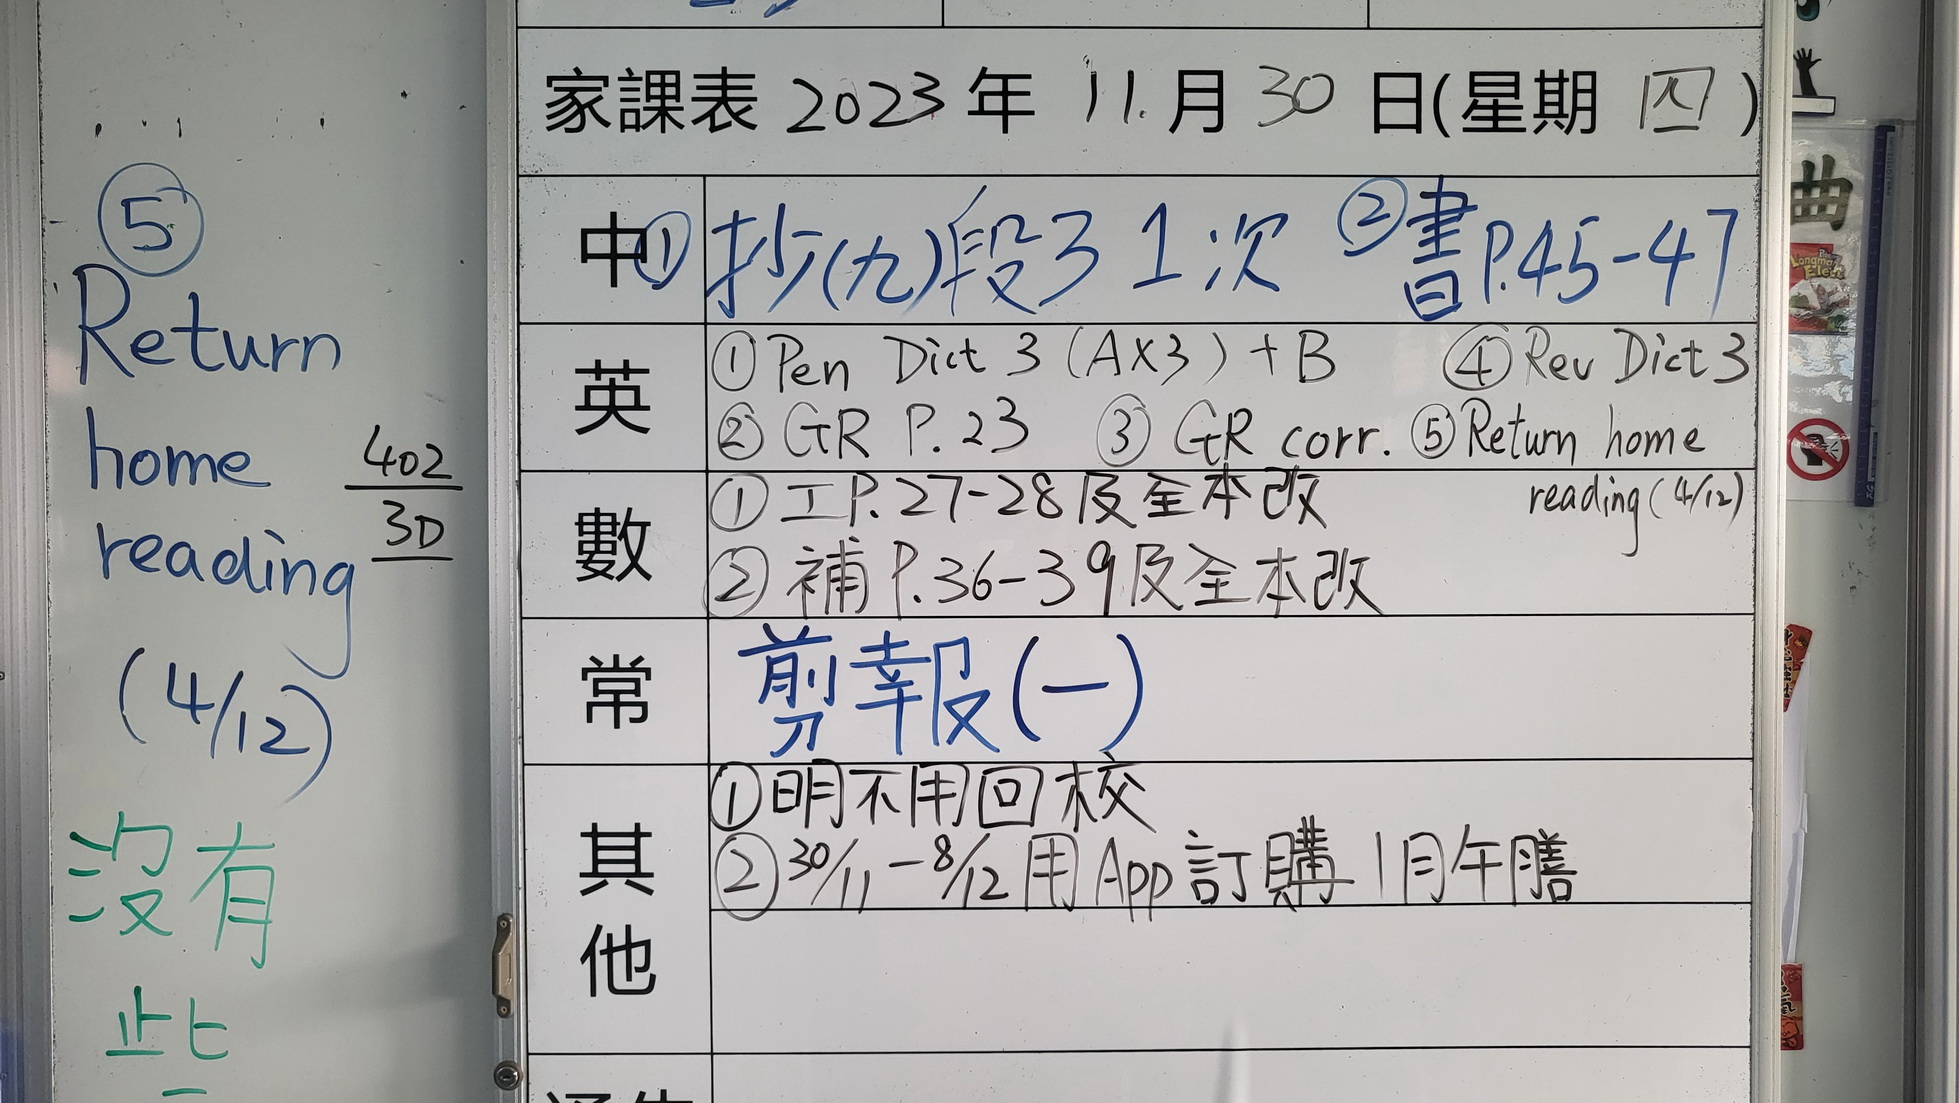 ⑤
Return
home
reading
(4/12)
402
3D
没有
些
家課表 2023 年 11 月 30 日(星期 四)
中 ① 抄(九)段3 1次 ② 書P.45-47
英
① Pen Dict 3 (A×3) + B ④ Rev Dict 3
② GR P.23 ③ GR corr. ⑤ Return home
reading (4/12)
數
① 工P.27-28及全本改
② 補P.36-39及全本改
常 剪報(一)
其他
① 明不用回校
② 30/11-8/12用App訂購1月午膳
曲
Longman
Elect